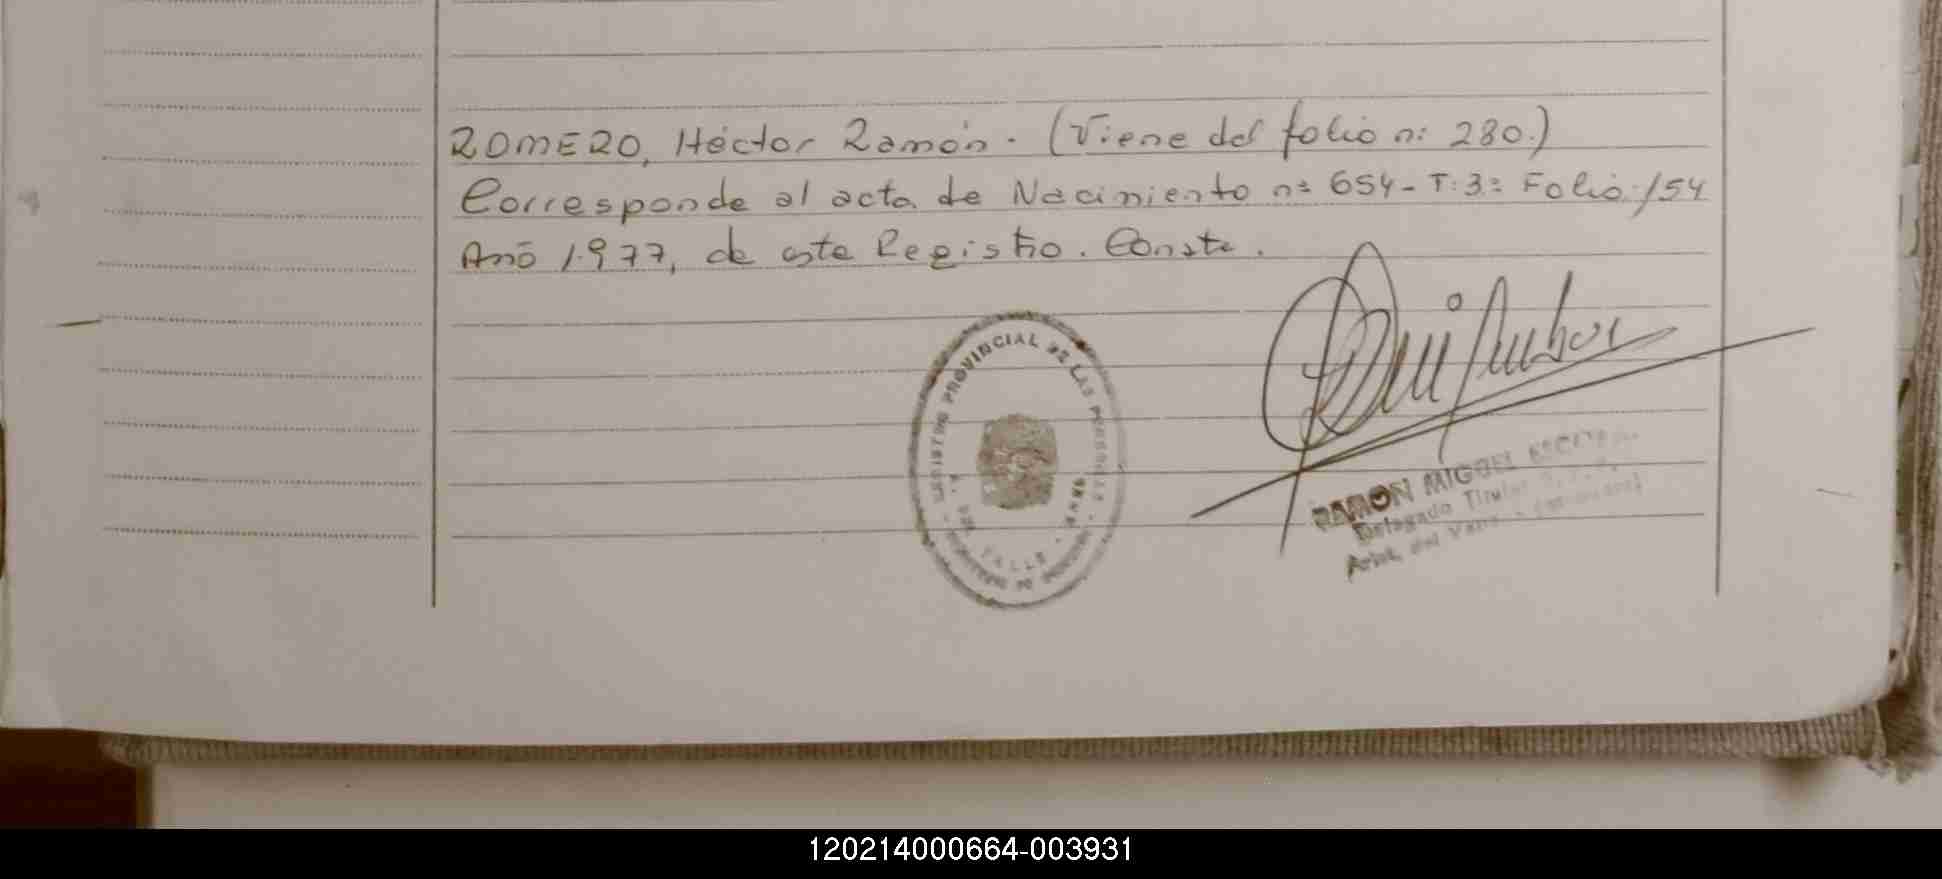 ROMERO, Héctor Ramón. (Viene del folio n: 280.)
Corresponde al acta de Nacimiento nº 654 - T: 3: Folio: 154
Año 1.977, de este Registro. Conste.
REGISTRO PROVINCIAL DE LAS PERSONAS
VALLE
RAMON MIGUEL
Delegado Titular
120214000664-003931